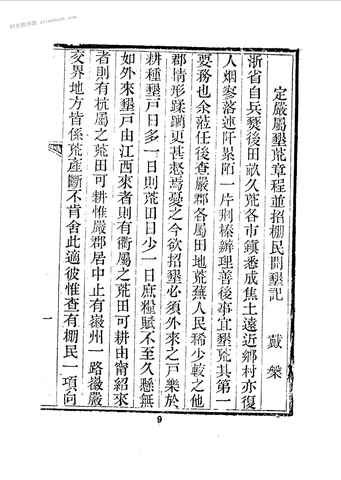 定嚴屬墾荒章程並招棚民開墾記
戴槃
浙省自兵燹後田畝久荒各市鎮悉成焦土遠近鄉村亦復
人烟寥落連阡累陌一片荆榛辦理善後事宜墾荒其第一
要務也余蒞任後查嚴郡各屬田地荒蕪人民稀少較之他
郡情形蹂躪更甚慼焉憂之今欲招墾必須外來之戶樂於
耕種墾戶日多一日則荒田日少一日庶糧賦不至久懸無
如外來墾戶由江西來者則有衢屬之荒田可耕由甯紹來
者則有杭屬之荒田可耕惟嚴郡居中止有嶶州一路徽嚴
交界地方皆係荒產斷不肯舍此適彼惟查有棚民一項向
一
9